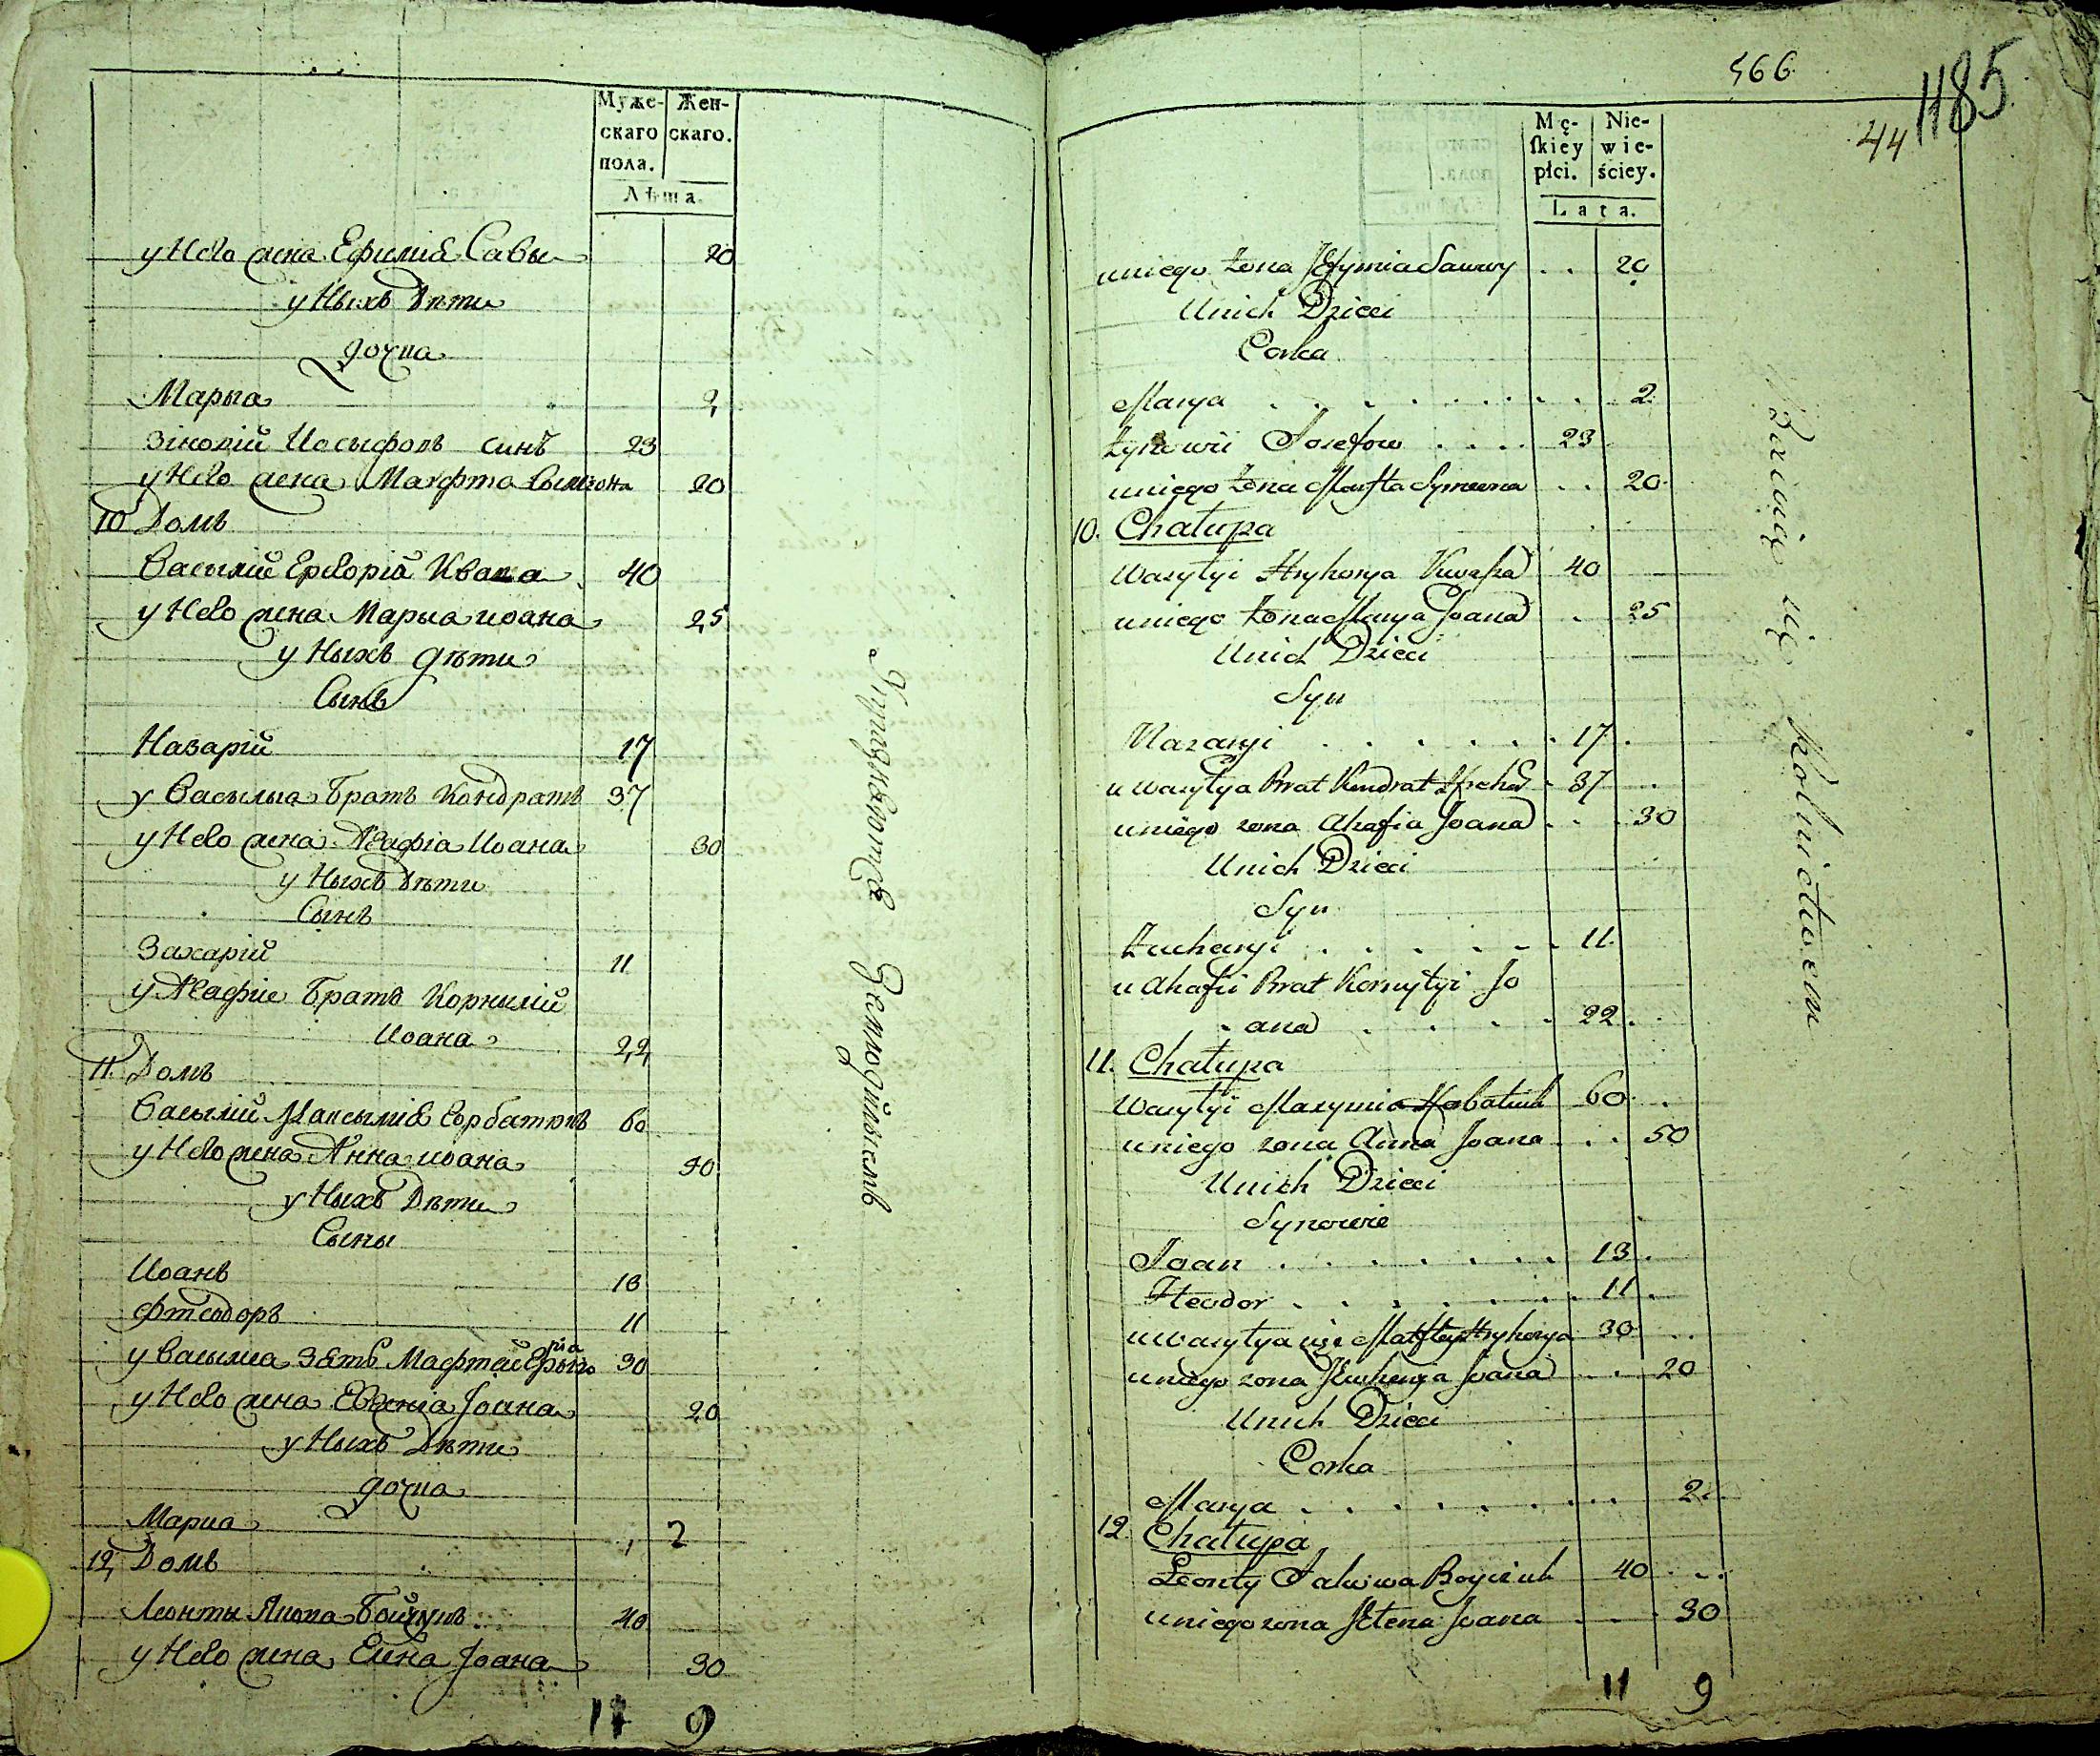 Муже-
скаго
пола.
Жен-
скаго.
Лѣта.
у Него жена Ефимія Савы 20
у Ныхъ Дѣти
дочка
Марыа 2
Зіновій Иосыфовъ синъ 23
у Него жена Марфта Сымеона 20
10 Домъ
Васылій Григорія Кваша 40
у Него жена Мариа иоана 25
у Ныхъ дѣти
Сынъ
Назарій 17
у Васылыа Братъ Кондратъ 37
у Него жена Агафіа Иоана 30
у Ныхъ Дѣти
Сынъ
Захарій 11
у Агафіе Братъ Корнилій
Иоана 22
11. Домъ
Васылій Максыміа Горбатюкъ 60
у Него жена Анна иоана 50
у Ныхъ Дѣти
Сыны
Иоанъ 13
Фтеодоръ 11
у Васылиа Зять Мафтей Григориа 30
у Него жена Евгеніа Іоана 20
у Ныхъ Дѣти
дочка
Мариа 2
12 Домъ
Леонты Якова Бойчукъ 40
у Него жена Елена Іоана 30
11 9
Упражняются Земледѣлиемъ
566
1185
44
Mę-
skiey
płci.
Nie-
wie-
ściey.
Lata.
u niego żona Jefymia Sawwy . . 20
U nich Dzieci
Corka
Marya . . . . . . . . . 2
Zynowii Josefow . . . . 23
u niego żona Marfta Symeona . . 20
10. Chałupa
Wasylyi Hryhorya Kwasza 40
u niego żona Marya Joana . 25
U nich Dzieci
Syn
Nazaryi . . . . . . 17 .
u Wasylya Brat Kondrat . 37 . .
u niego zona Ahafia Joana . . . 30
U nich Dzieci
Syn
Zacharyi . . . . . . 11
u Ahafii Brat Kornylyi Jo
ana . . . . . 22 .
11. Chałupa
Wasylyi Maxymia Horbatiuk 60 .
u niego zona Anna Joana . . . 50
U nich Dzieci
Synowie
Joan . . . . . . . 13 .
Fteodor . . . . . . . 11 .
u Wasylya zięc Maftey Hryhorya 30 . .
u niego zona Jewhenya Joana . . 20
U nich Dzieci
Corka
Marya . . . . . . . . . 2
12 Chałupa
Leonty Jakowa Boyczuk 40 . . .
u niego zona Jełena Joana . . . 30
11 9
Bawią się Rolnictwem